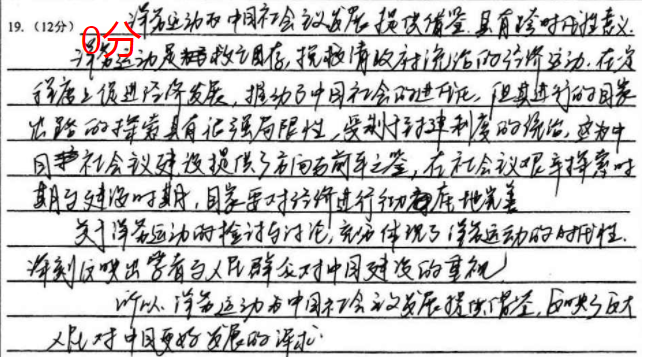 19.（12分） 0分 洋务运动为中国社会主义发展提供借鉴,具有跨时代性意义.
洋务运动是救亡图存,挽救清政府统治的经济运动.在一定
程度上促进经济发展,推动了中国社会的近代化,但其进行的国家
出路的探索具有很强局限性,受制于封建制度的统治,这为中
国社会主义建设提供了方向与前车之鉴,在社会主义艰辛探索时
期与建设时期,国家要对经济进行行动地完善
关于洋务运动的检讨与讨论,充分体现了洋务运动的时代性.
深刻反映出学者与人民群众对中国建设的重视
所以洋务运动为中国社会主义发展提供借鉴,反映了
人民对中国更好发展的诉求.